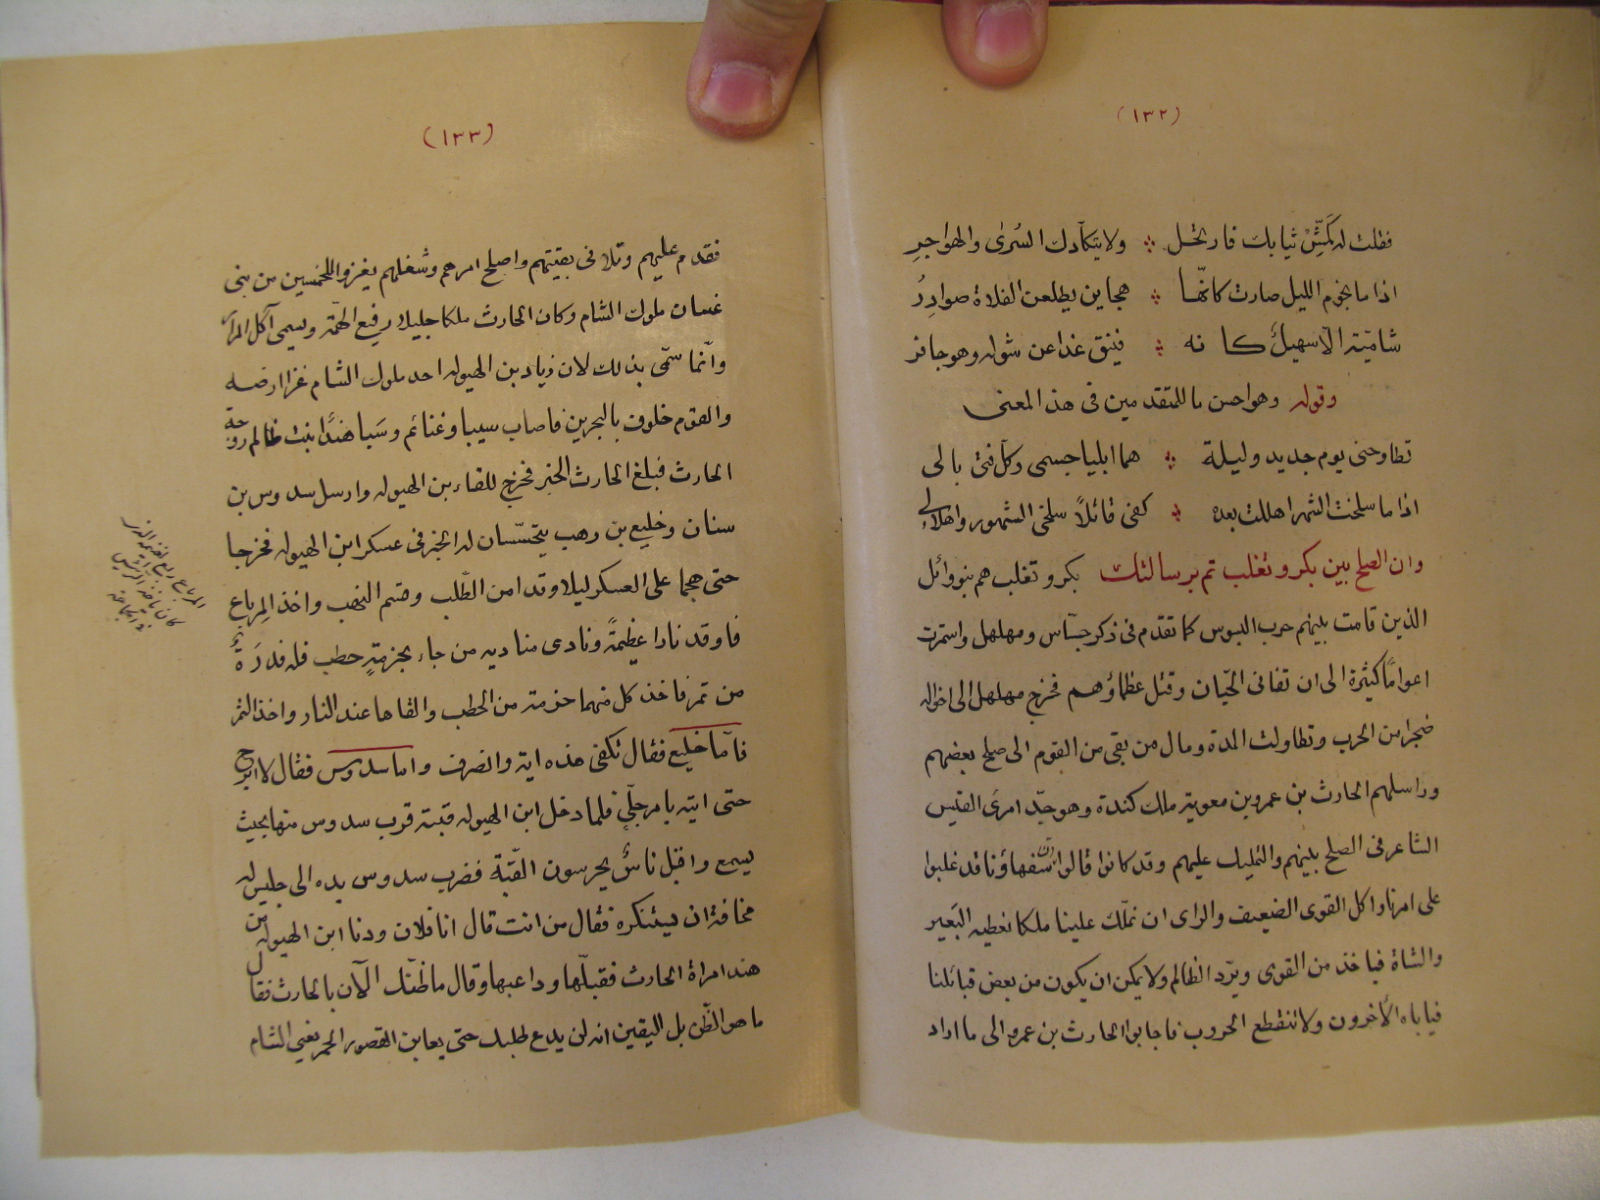 (١٣٢)
فقلت له كَمِّشْ ثيابك فارتحل ولا يتكآدك السُرى والهواجرِ
اذا ما نجوم الليل صارت كانّها هجاين يطلعن الفلاة صوادِرُ
شاميّته الّا سهيلٌ كانه فنيق غدا عن شوله وهو جافر
وقوله وهو احسن ما للمتقدمين فى هذا المعنى
تطاوحنى يوم جديد وليلة هما ابليا جسمى وكل فتى بالى
اذا ما سلخت الشهر اهللت بعده كفى قائلاً سلخى الشهور واهلالى
وان الصلح بين بكر وتغلب تم برسالتك بكر وتغلب هم بنو وائل
الذين قامت بينهم حرب البسوس كما تقدم فى ذكر جسّاس ومهلهل واستمرت
اعوامًا كثيرة الى ان تفانى الحيّان وقتل عظماؤهم فخرج مهلهل الى اخواله
ضجرا من الحرب وتطاولت المدة ومال من بقى من القوم الى صلح بعضهم
وراسلهم الحارث بن عمرو بن معوية ملك كندة وهو جدّ امرئ القيس
الشاعر فى الصلح بينهم والتمليك عليهم وقد كانوا قالوا ان سفهاؤنا قد غلبوا
على امرنا واكل القوى الضعيف والراى ان نملّك علينا ملكا نعطيه البَعير
والشاة فياخذ من القوى ويردّ الظالم ولا يمكن ان يكون من بعض قبائلنا
فياباه الأخرون ولا تنقطع الحروب فاجابوا الحارث بن عمرو الى ما اراد
(١٣٣)
فقدم عليهم وتلافى بقيتهم واصلح امرهم وشغلهم بغزو اللخميين من بنى
غسان ملوك الشام وكان الحارث ملكا جليلا رفيع الهمّة ويسمى آكل المرار
وانّما سمّى بذلك لان زياد بن الهيوله احد ملوك الشام غزا ارضه
والقوم خلوف بالبحرين فاصاب سيبا وغنائم وسَبا هندًا بنت ظالم زوجة
الحارث فبلغ الحارث الخبر فخرج للقاء بن الهيوله وارسل سدوس بن
سنان وخليع بن وهب يتحسّسان له الخبر فى عسكر ابن الهيوله فخرجا
حتى هجما على العسكر ليلا وقد امن الطّلب وقسم النهب واخذ المِرباع
فاوقد نارا عظيمةً ونادى مناديه من جاء بحزمةِ حطب فله قدرَةٌ
من تمر فاخذ كل منهما حزمة من الحطب والقاها عند النار واخذ التمر
فامّا خليع فقال تكفى هذه اية وانصرف واما سدوس فقال لا ابرح
حتى اتيه بامر جلّى فلما دخل ابن الهيوله قبته قرب سدوس منها بحيث
يسمع واقبل ناسٌ يحرسون القبّة فضرب سدوس يده الى جليس له
مخافة ان يستنكره فقال من انت قال انا فلان ودنا ابن الهيوله من
هند امراة الحارث فقبلّها وداعبها وقال ما ظنّك الآن بالحارث فقال
ما هو الظّن بل اليقين انه لن يدع طلبك حتى يعاين القصور الحمر يعنى الشام
المرباع ربع الغنيمة الذى
كان ياخذه الرئيس
فى الجاهلية